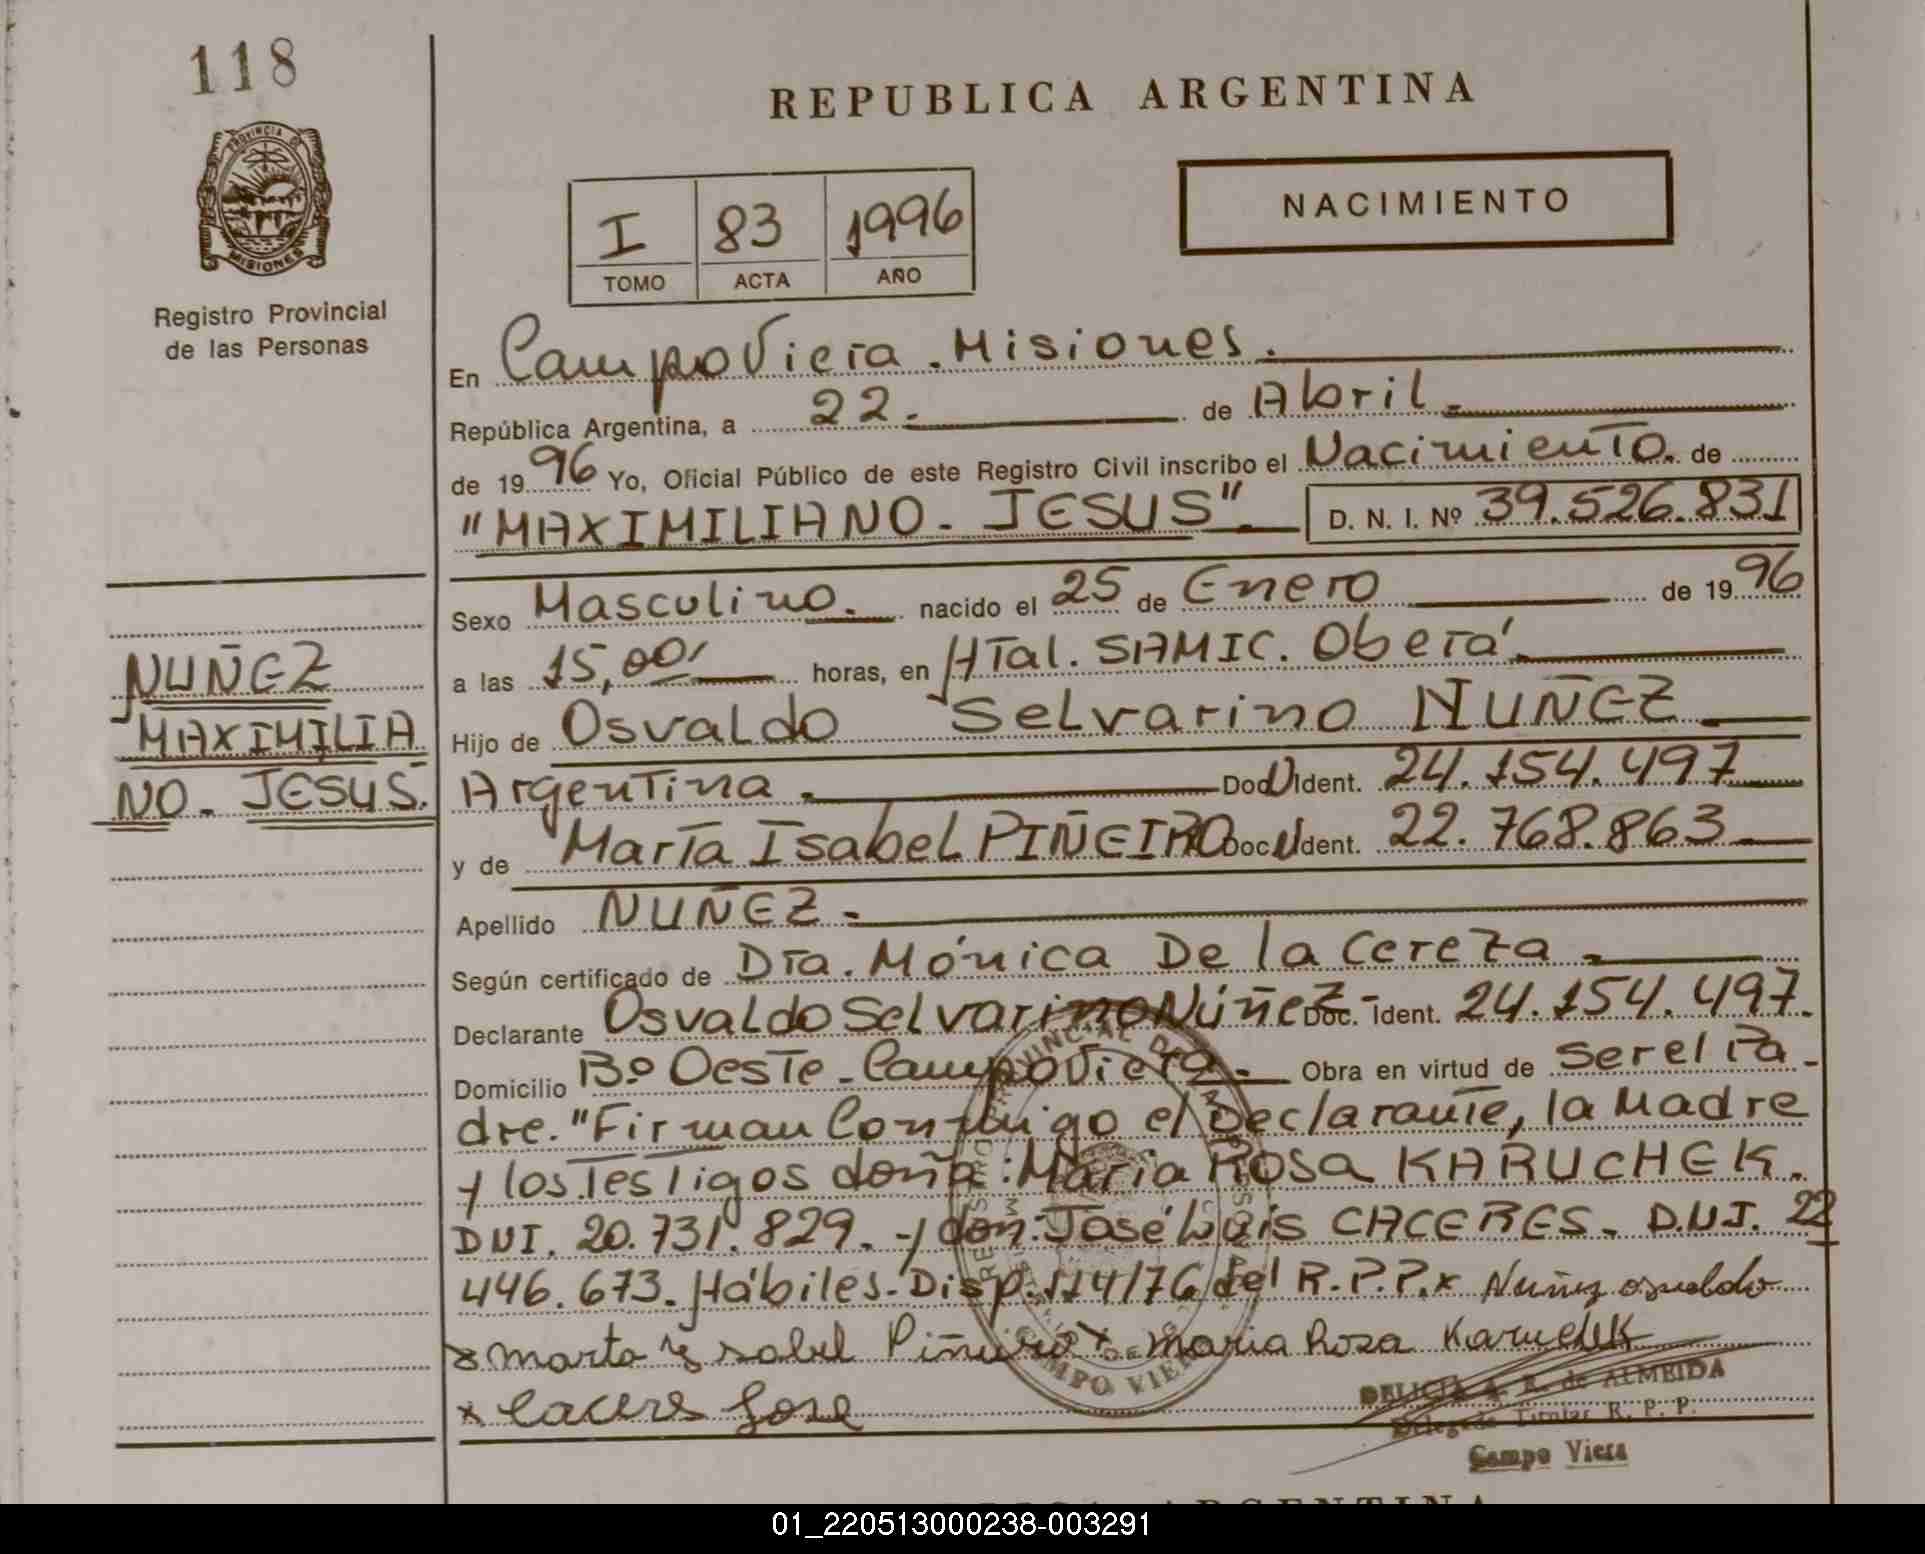 118
PROVINCIA DE
MISIONES
Registro Provincial
de las Personas
NUÑEZ
MAXIMILIA
NO. JESUS.
REPUBLICA ARGENTINA
I 83 1996
TOMO ACTA AÑO
NACIMIENTO
En Campo Viera. Misiones.
República Argentina, a 22. de Abril.
de 1996 Yo, Oficial Público de este Registro Civil inscribo el Nacimiento. de
"MAXIMILIANO. JESUS". D. N. I. Nº 39.526.831
Sexo Masculino. nacido el 25 de Enero de 1996
a las 15,00' horas, en HTal. SAMIC. Oberá.
Hijo de Osvaldo Selvarino NUÑEZ
Argentina. Doc U Ident. 24.154.497
y de Marta Isabel PIÑEIRO Doc U Ident. 22.768.863
Apellido NUÑEZ.
Según certificado de Dra. Mónica De la Cereza.
Declarante Osvaldo Selvarino Núñez- Doc. Ident. 24.154.497.
Domicilio Bº Oeste. Campo Viera. Obra en virtud de ser el Pa-
dre. "Firman Conmigo el Declarante, la Madre
y los Testigos doña: María Rosa KARUCHEK.
DNI. 20.731.829. y don: José Luis CACERES. D.N.I. 22
446.673. Hábiles. Disp. 114/76 del R.P.P. x Nuñez osvaldo
x Marta Ysabel Piñeiro x Maria Rosa Karuchek
x Caceres Jose
REGISTRO PROVINCIAL DE LAS PERSONAS
MISIONES
CAMPO VIERA
DELICIA A. R. de ALMEIDA
Delegada Titular R. P. P.
Campo Viera
REPUBLICA ARGENTINA
01_220513000238-003291